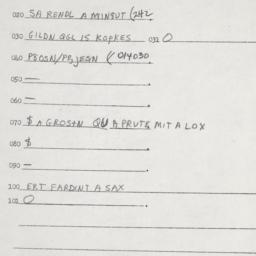 020 SA RENDL A MINSUT (242
030 GILDN QGL 15 KOPKES 032 0
040 PBOSN/PBJEGN (014030
050 —
060 —
070 $ A GROSTN QU A PRUTE MIT A LOX
080 $
090 —
100 ERT FARDINT A SAX
102 0